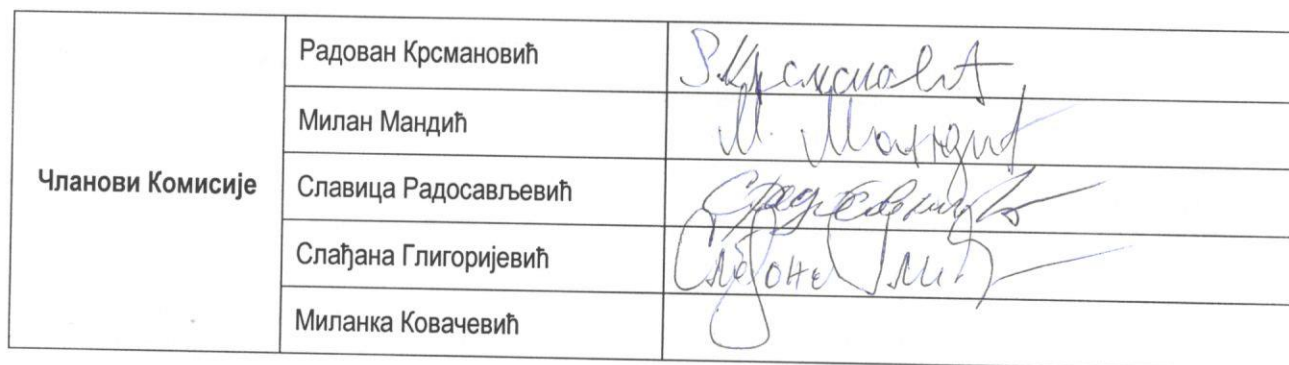 Чланови Комисије
Радован Крсмановић
Милан Мандић
М. Мандић
Славица Радосављевић
Слађана Глигоријевић
Миланка Ковачевић